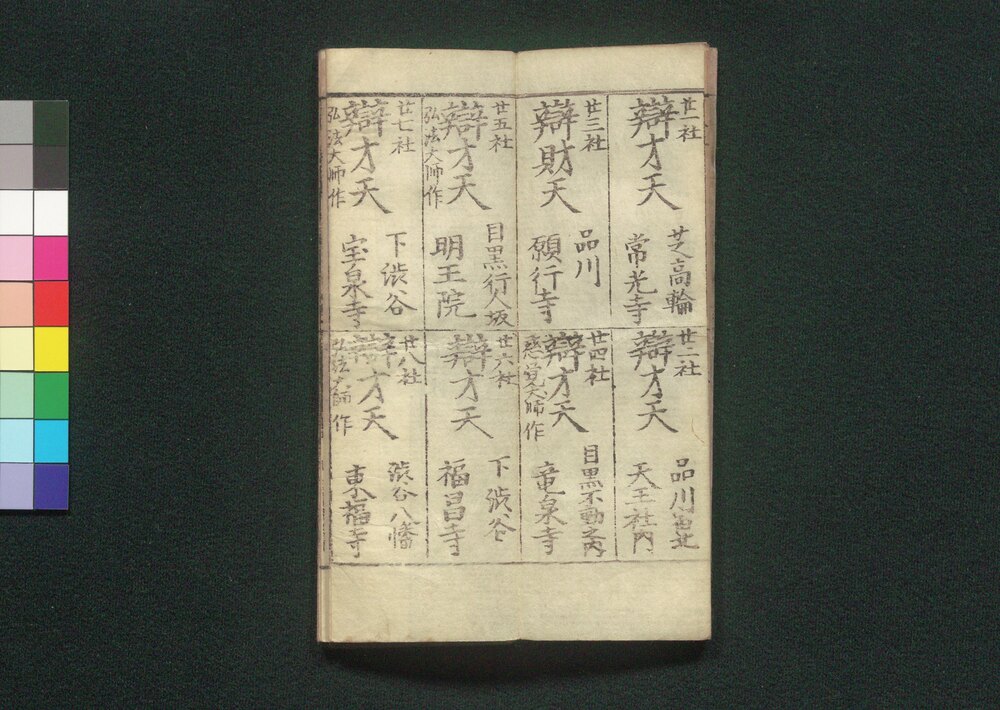 廿一社
辯才天
芝高輪
常光寺
廿二社
辯才天
品川
天王社内
廿三社
辯財天
品川
願行寺
廿四社
辯才天
慈覚大師作
目黒不動之内
竜泉寺
廿五社
辯才天
弘法大師作
目黒行人坂
明王院
廿六社
辯才天
下渋谷
福昌寺
廿七社
辯才天
弘法大師作
下渋谷
宝泉寺
廿八社
辯才天
弘法大師作
渋谷八幡
東福寺